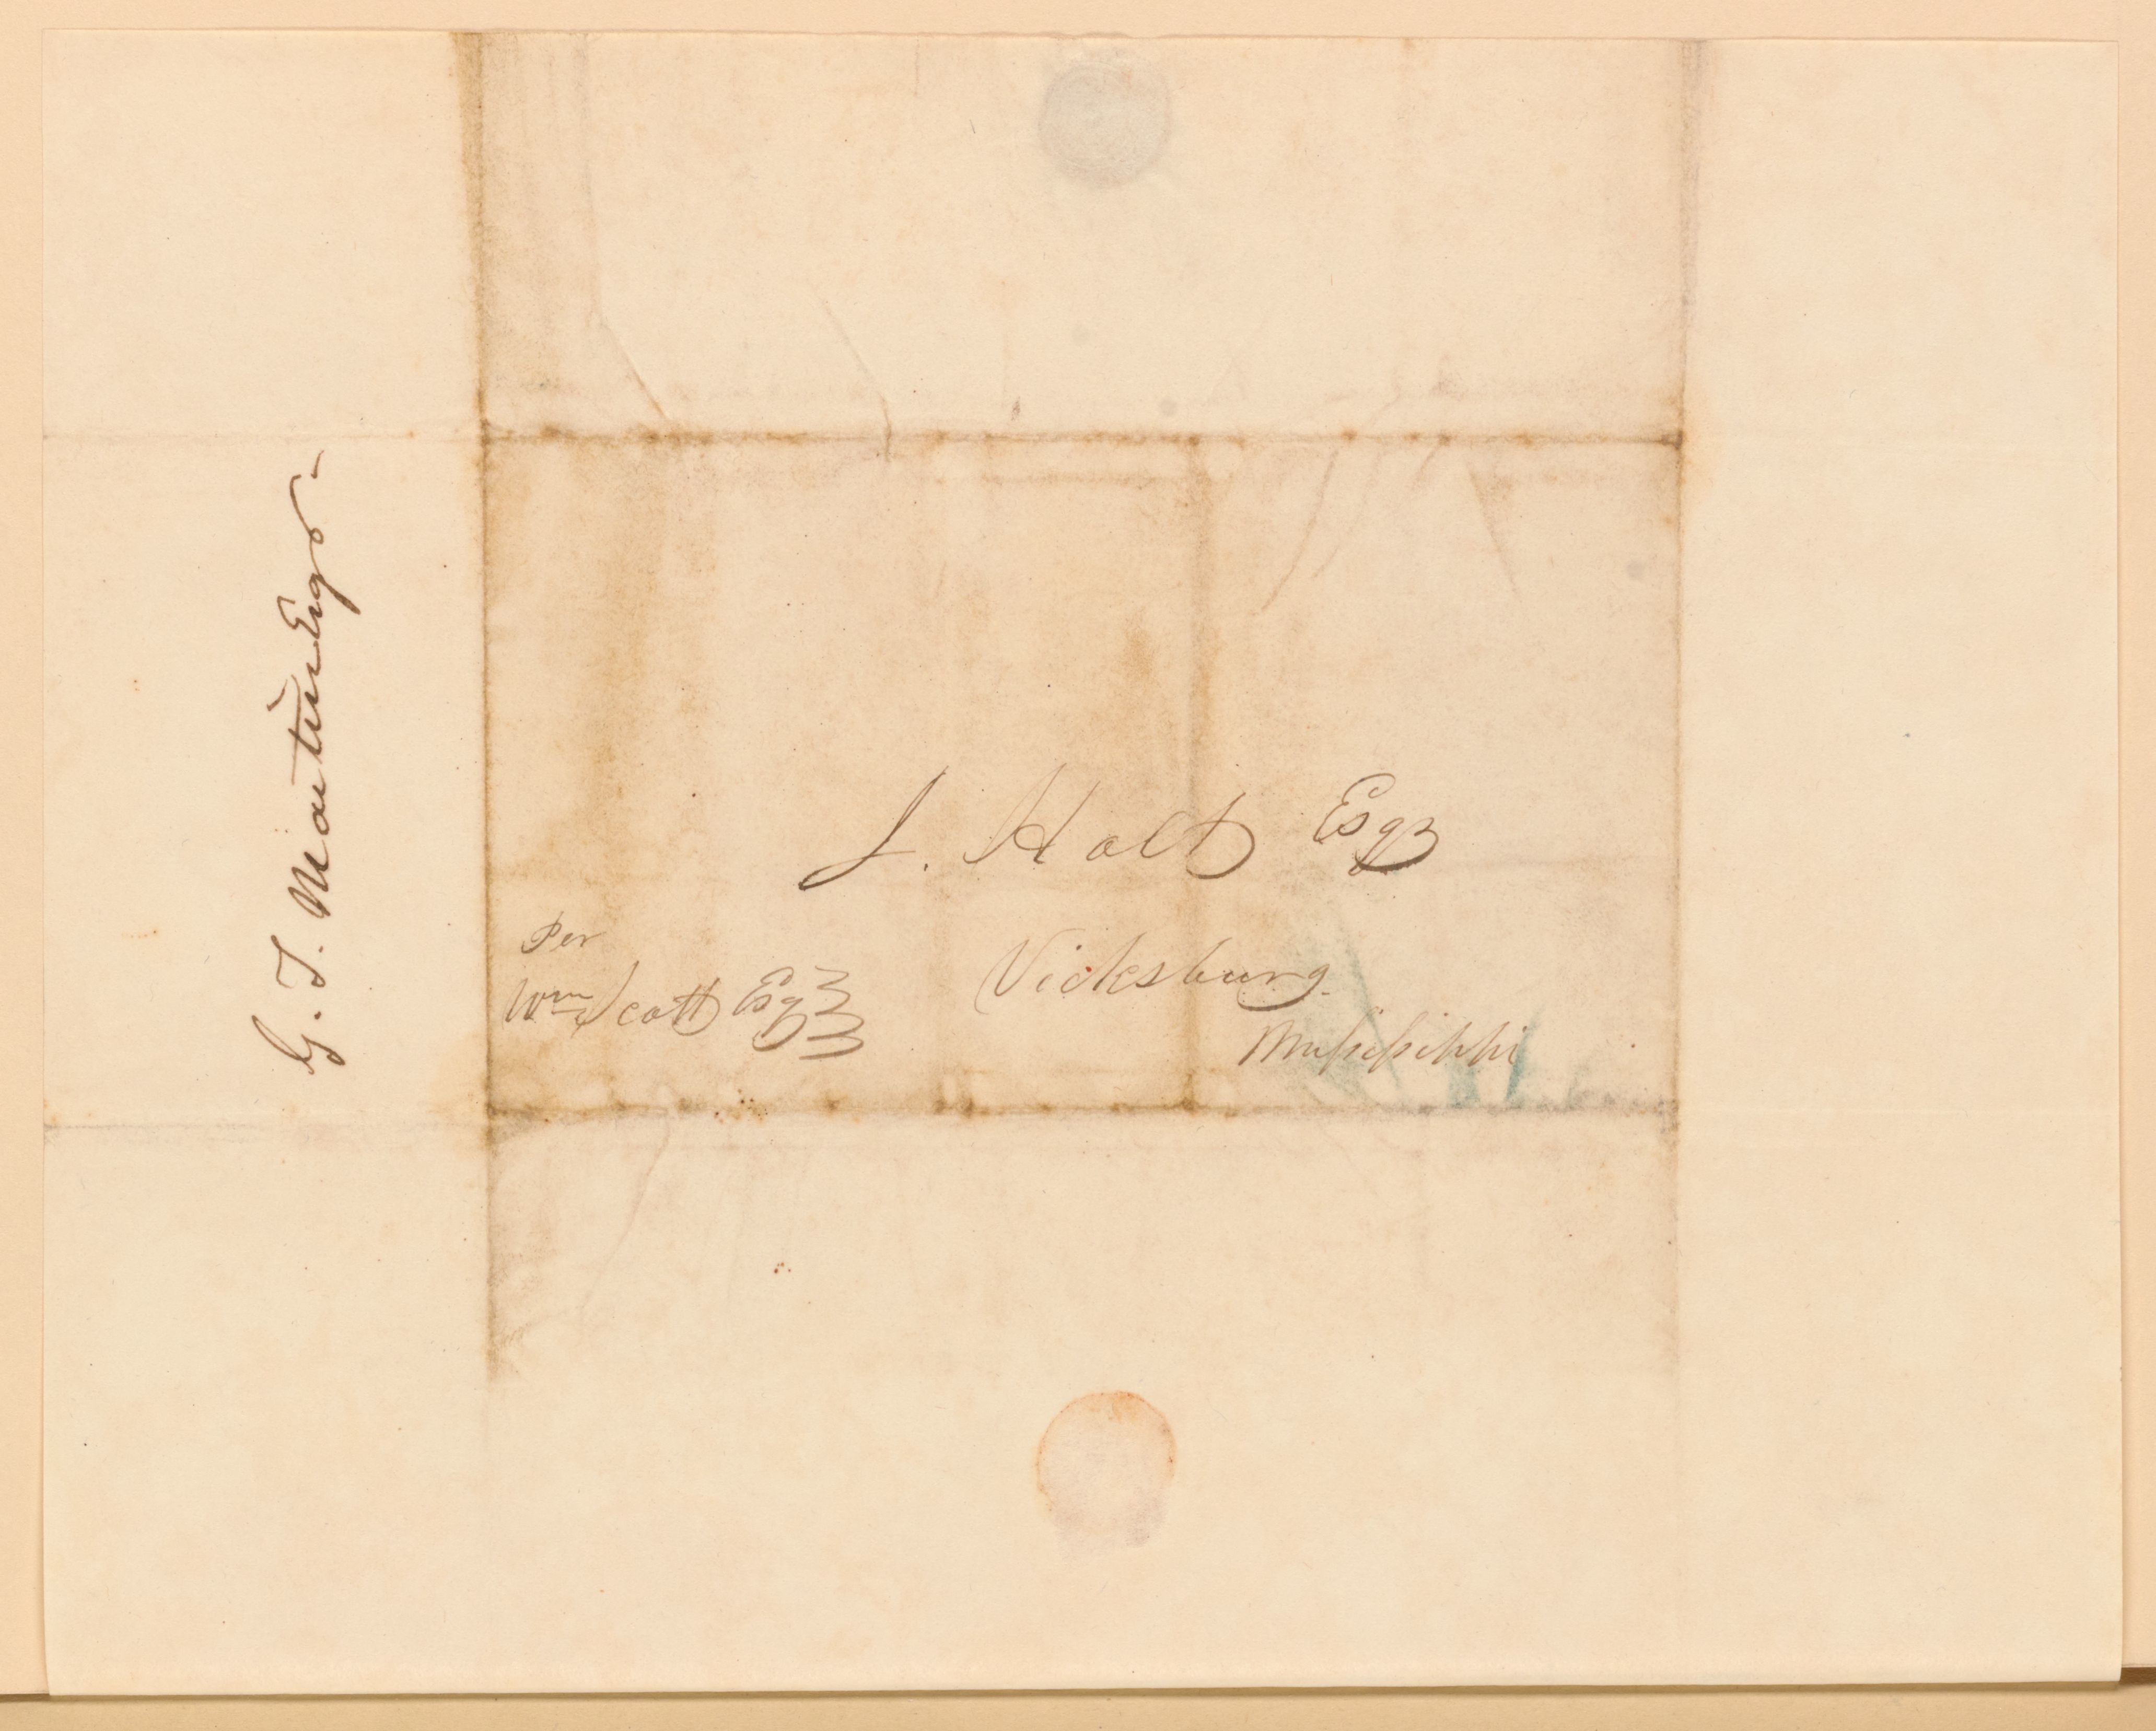 G. T. Martin Esqr
J. Holt Esqr
Per
Wm Scott Esqr
Vicksburg
Mississippi